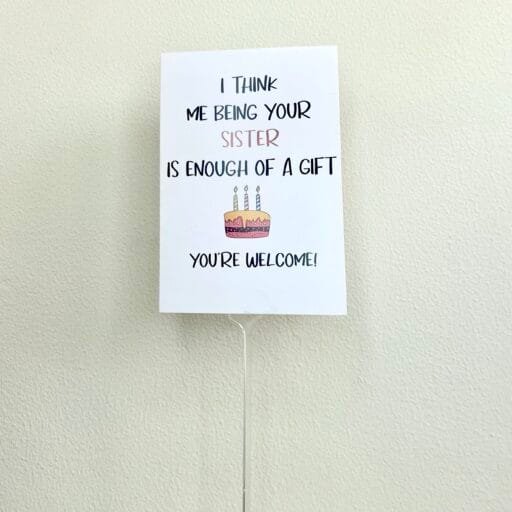 I THINK
ME BEING YOUR
SISTER
IS ENOUGH OF A GIFT
YOU'RE WELCOME!